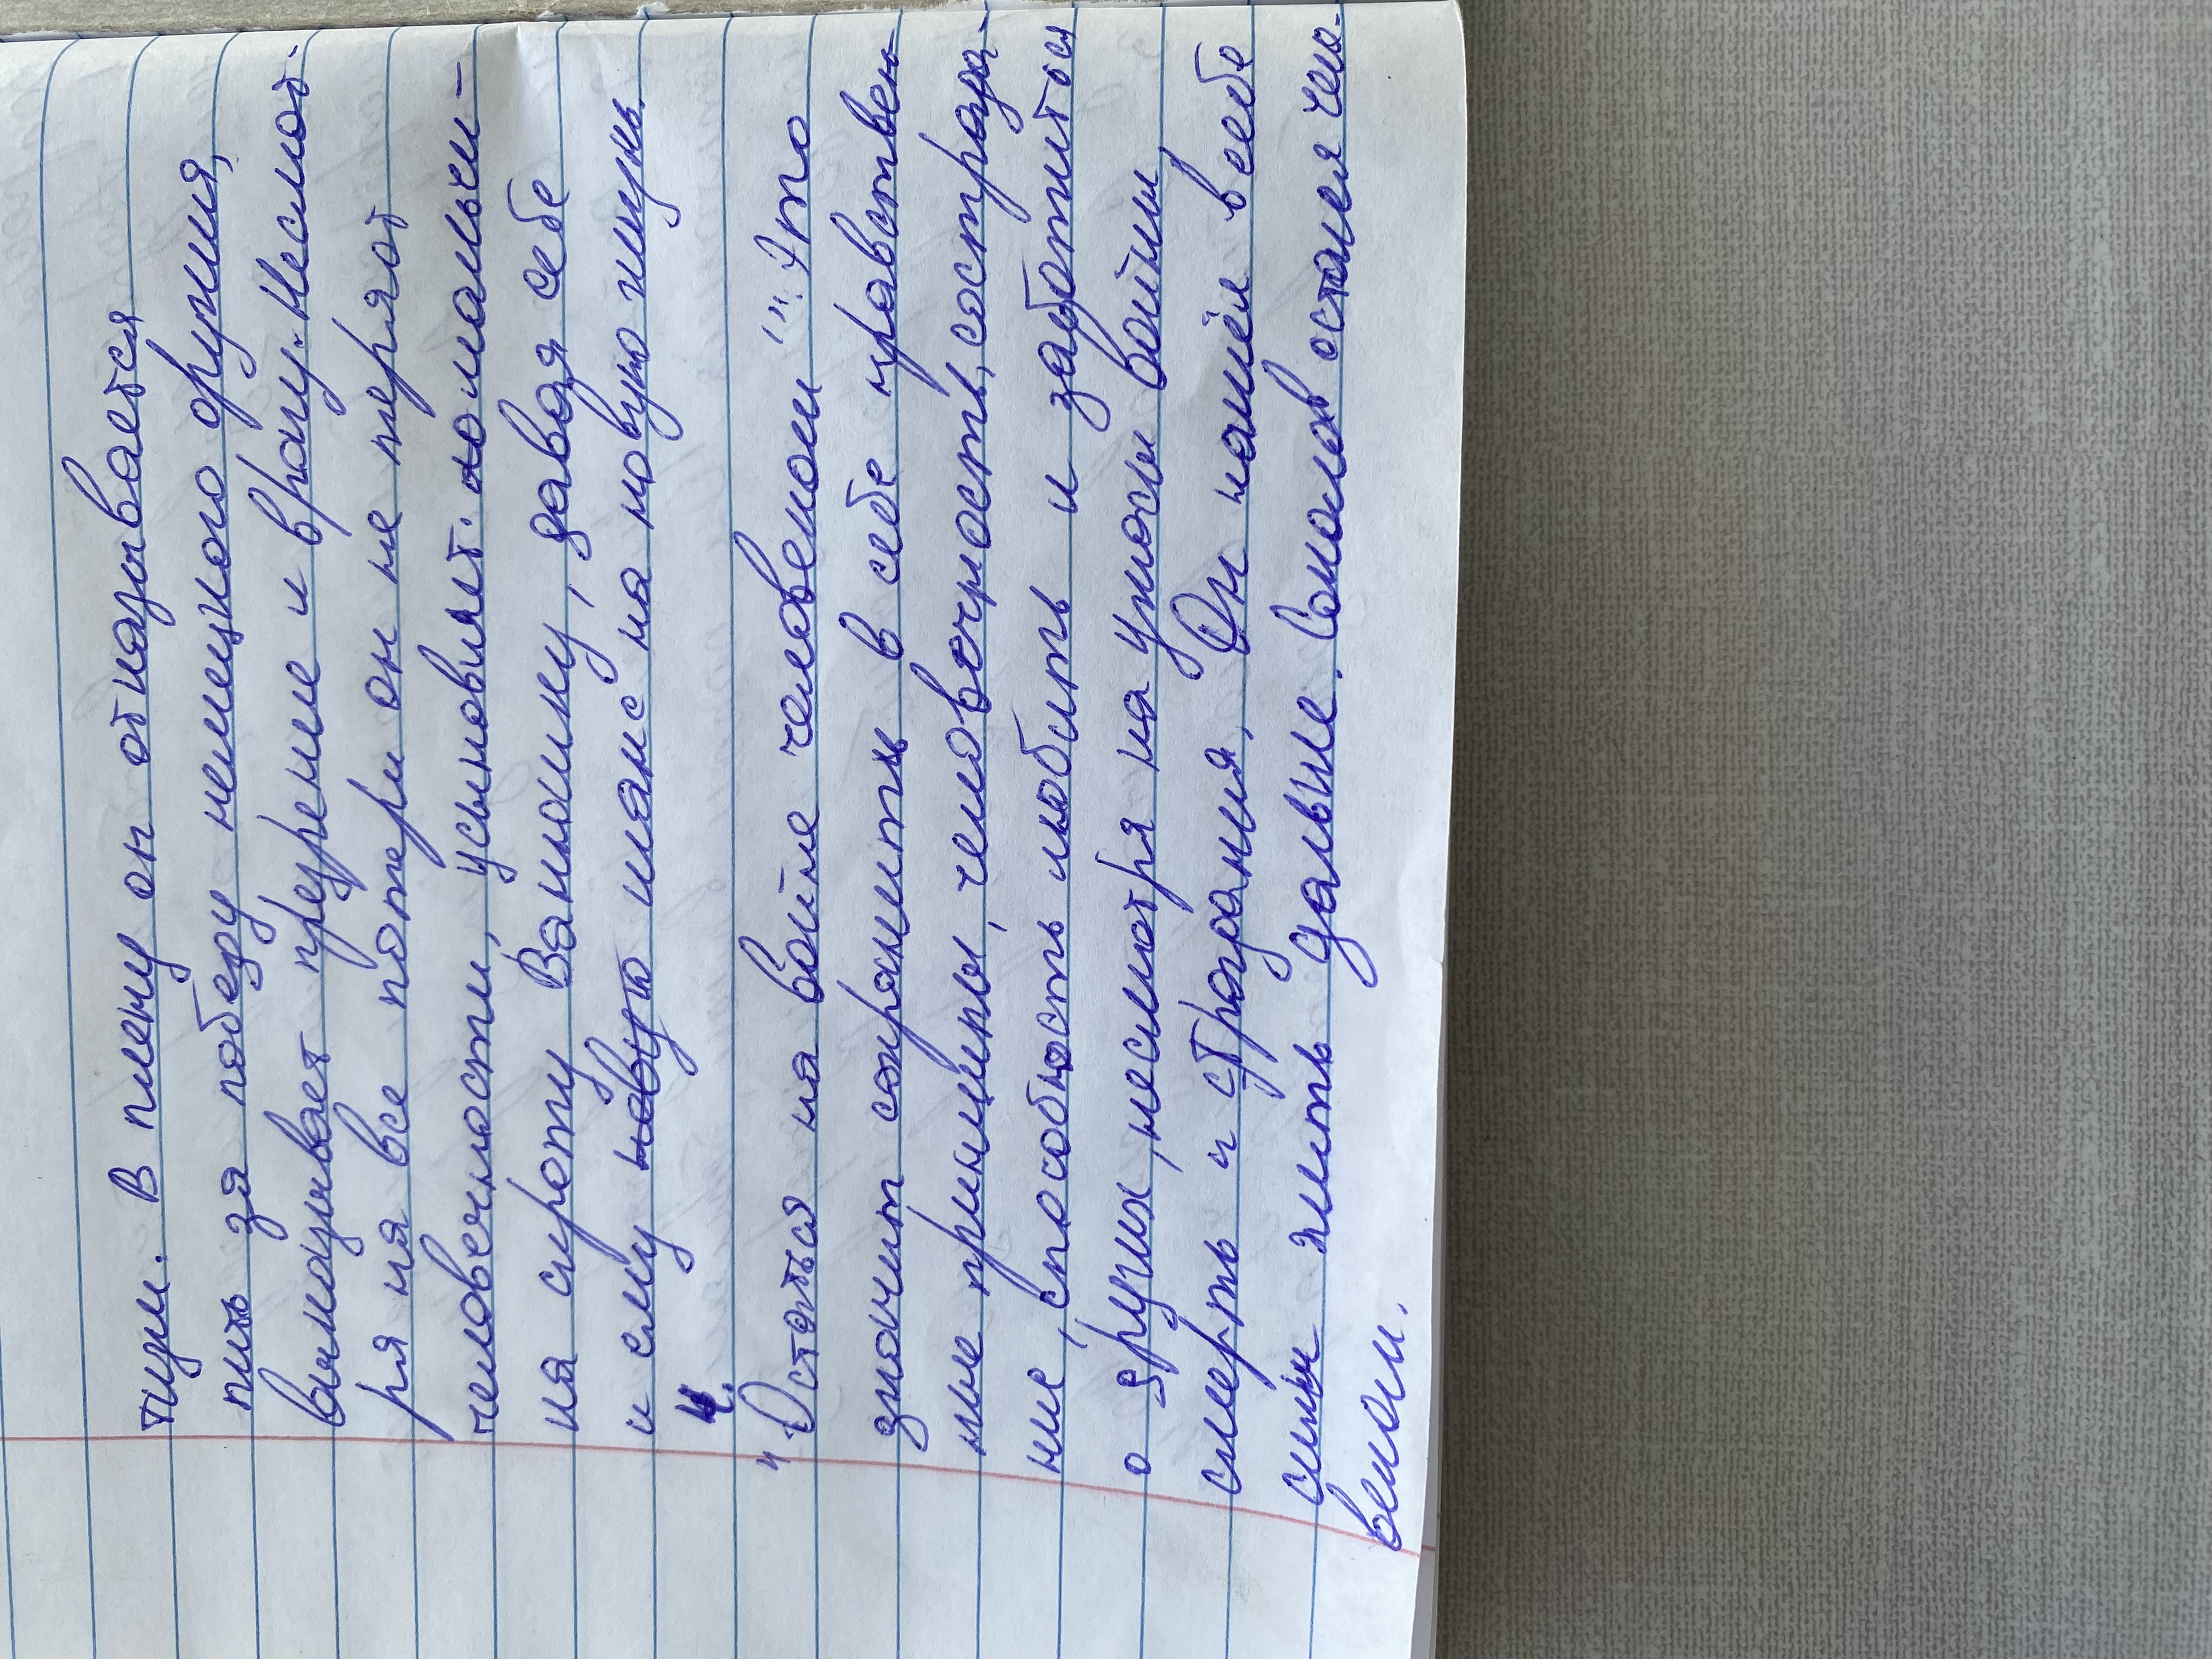 тцм. В плену он отказывается
пить за победу немецкого оружия,
выказывает презрение и врагу. Несмот-
ря на все потери он не перяют
человечности, усыновляет мальчи-
на сироту Ванюшку, давая себе
и ему новую шанс на новую жизнь
4.
"Остаться на войне человеком". Это
значит сохранить в себе нравствен-
ные принципы, человечность, сострада-
ние, способность любить и заботиться
о других, несмотря на ужасы войны
смерть и страдания, Он нашёл в себе
силы жить дальше. Соколов остался чело-
веком.